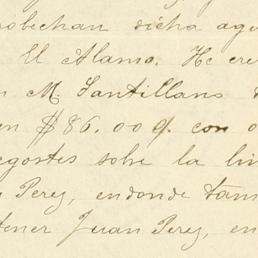 robechan dicha agu
El Alamo. He cre
n M. Santillano
en $86.00 con o
egortes sobre la lin
Perez, endonde tam
tener Juan Perez, en